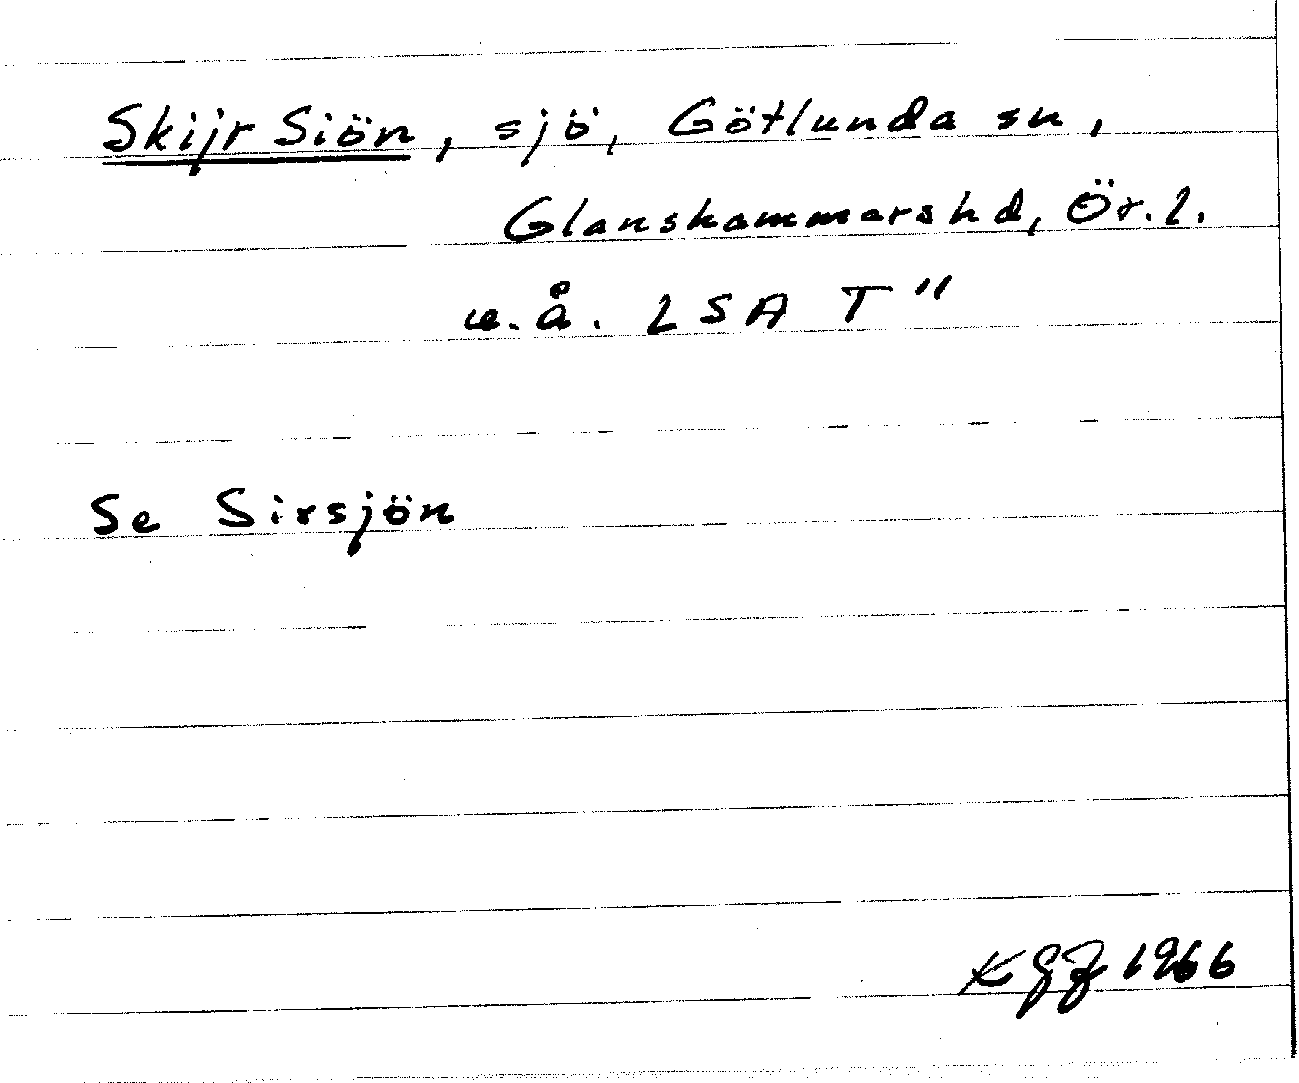 Skijr Siön, sjö, Götlunda sn,
Glanshammars hd, Ör. l.
u.å. LSA T"
Se Sirsjön
1966